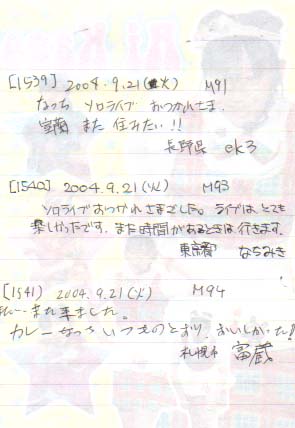 [1539] 2004.9.21(火) M91
なっち ソロライブ おつかれさま.
室蘭 また 住みたい!!
長野県 ek3
[1540] 2004.9.21(火) M93
ソロライブおつかれさまでした。ライブは、とても
楽しかったです。また時間があるときは、行きます。
東京都 なちみき
[1541] 2004.9.21(火) M94
また来ました。
カレーなっち いつものとおり、おいしかった!
札幌市 富蔵